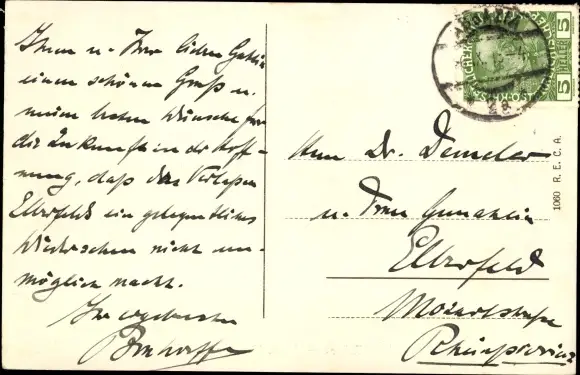 Ihnen u. Ihrer lieben Gattin
einen schönen Gruß u.
meine besten Wünsche für
die Zukunft in der Hoff-
nung, daß das Verlassen
Elberfelds ein gelegentliches
Wiedersehen nicht un-
möglich macht.
Ihr ergebenster
Herrn Dr. Demeler
u. Frau Gemahlin
Elberfeld
Mozartstraße
Rheinprovinz
5 HELLER 5
1060 R. E. C. A.